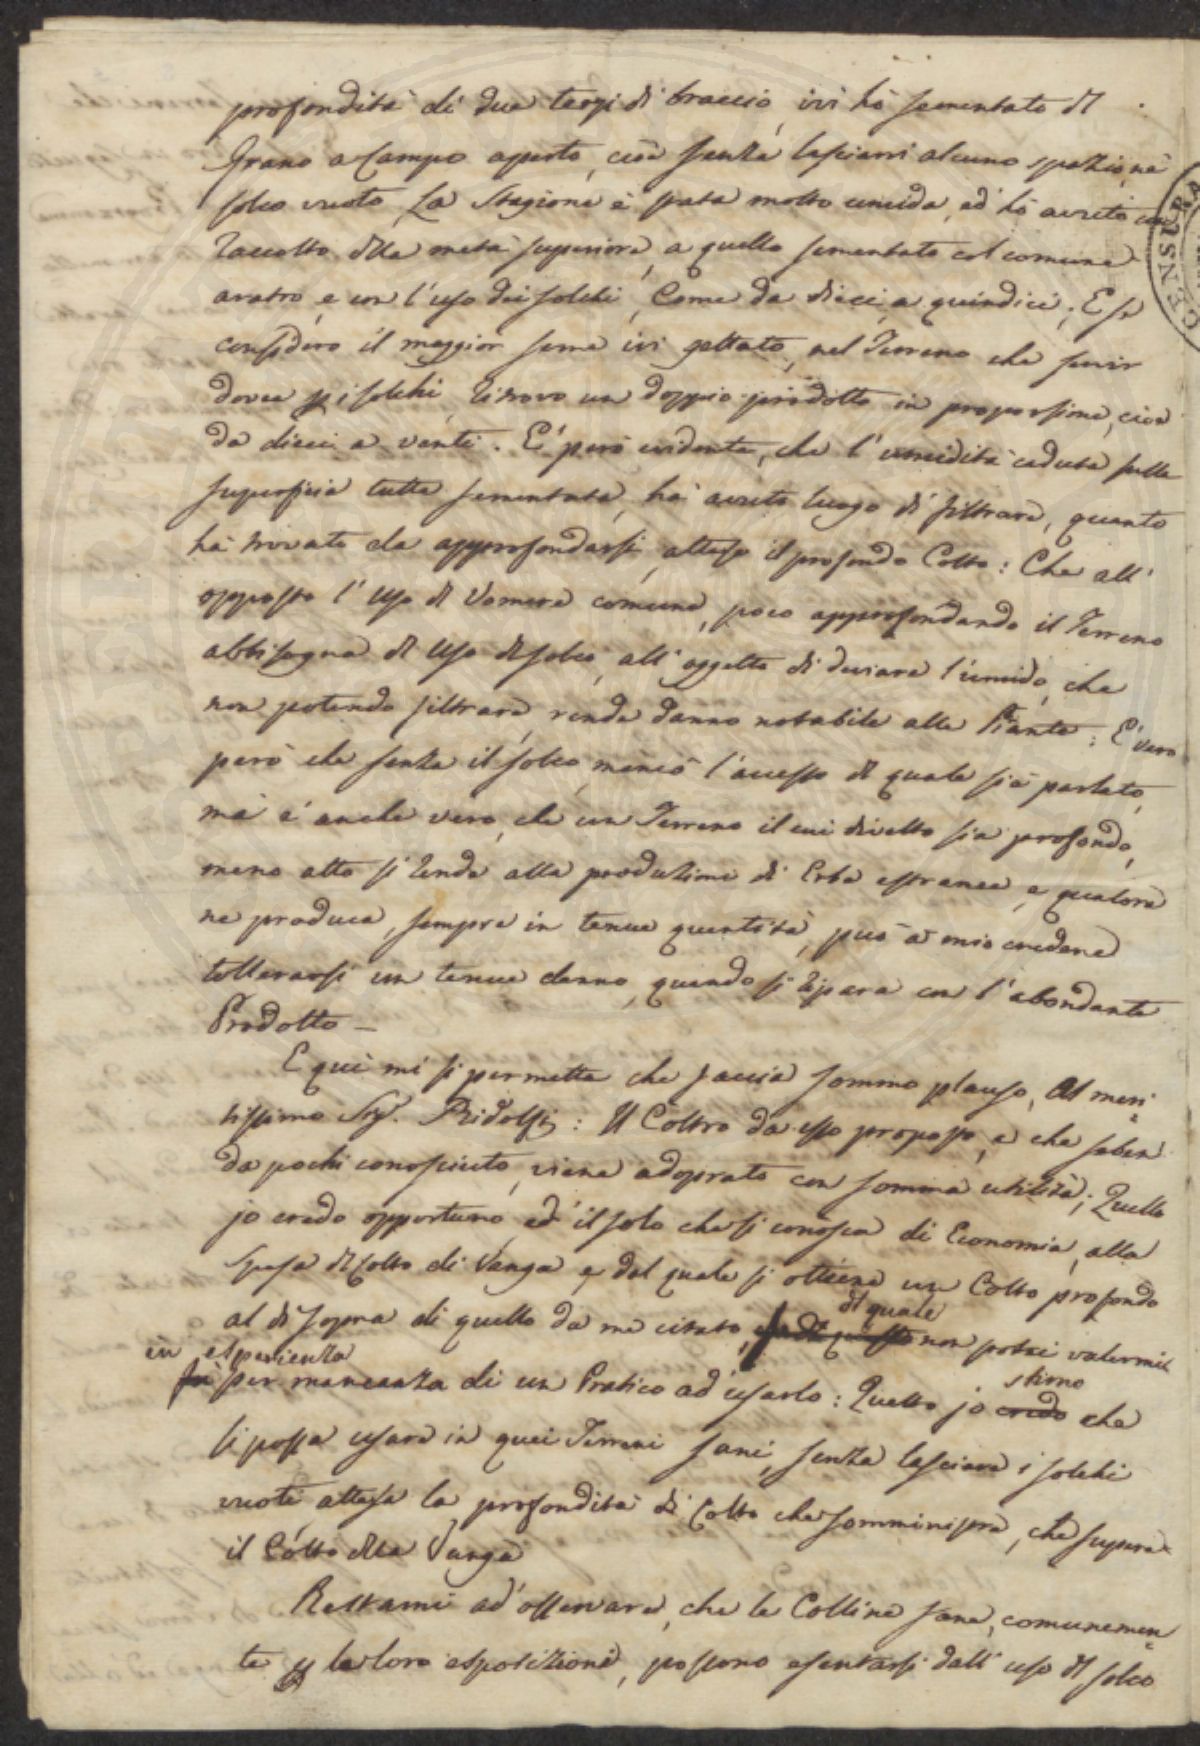 profondità di due terzi di braccio, ivi hò sementato di
Grano a Campo aperto, cioè senza lasciarvi alcuno spazio, nè
solco vuoto. La Stagione è stata molto umida, ed hò avuto un
raccolto della metà superiore, a quello sementato col comune
aratro, e con l'uso dei solchi, Come da dieci, a quindici; E se
considero il maggior seme ivi gettato, nel Terreno che servir
dovea p i solchi, ritrovo un doppio prodotto in proporzione, cioè
da dieci a venti. E' però evidente, che l'umidità caduta sulla
superficie tutta sementata, hà avuto luogo di filtrare, quanto
hà trovato da approfondarsi, atteso il profondo Colto: Che all'
opposto l'uso di Vomere comune, poco approfondando il Terreno
abbisogna di uso di solco, all'oggetto di deviare l'umido, che
non potendo filtrare, rende danno notabile alle Piante: E' vero
però che senza il solco, mencò l'accesso di quale si è parlato,
mà è anche vero, che un Terreno il cui divelto sia profondo,
meno atto si rende alla produzione di Erba estranea, e qualora
ne produca, sempre in tenue quantità, può à mio credere
tollerarsi un tenue danno, quando si ripara con l'abondante
Prodotto —
E quì mi si permetta che faccia sommo plauso, al meri
tissimo Sig.r Ridolfi: Il Coltro da esso proposto, e che seben
da pochi conosciuto, viene adoprato con somma utilità; Quello
jo credo opportuno, ed il solo che si conosca di Economia, alla
Spesa di Colto di Vanga, e dal quale si ottiene un Colto profondo
al di sopra di quello da me citato, di quale non potei valermi
in esperienza
per mancanza di un Pratico ad usarlo: Quello jo credo stimo che
si possa usare in quei Terreni sani, senza lasciare i solchi
vuoti, attesa la profondità di Colto che somministra, che supera
il Colto della Vanga
Restami ad osservare, che le Colline sane, comunemen
te p la loro esposizione, possono esentarsi dall'uso di solco
CENSURA